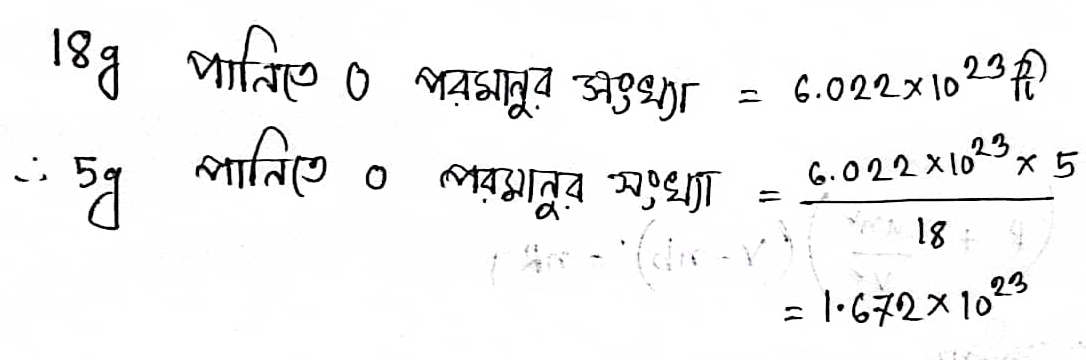 18g পানিতে O পরমানুর সংখ্যা = 6.022×10^23 টি
∴ 5g পানিতে O পরমানুর সংখ্যা = 6.022×10^23 × 5 / 18
= 1.672×10^23